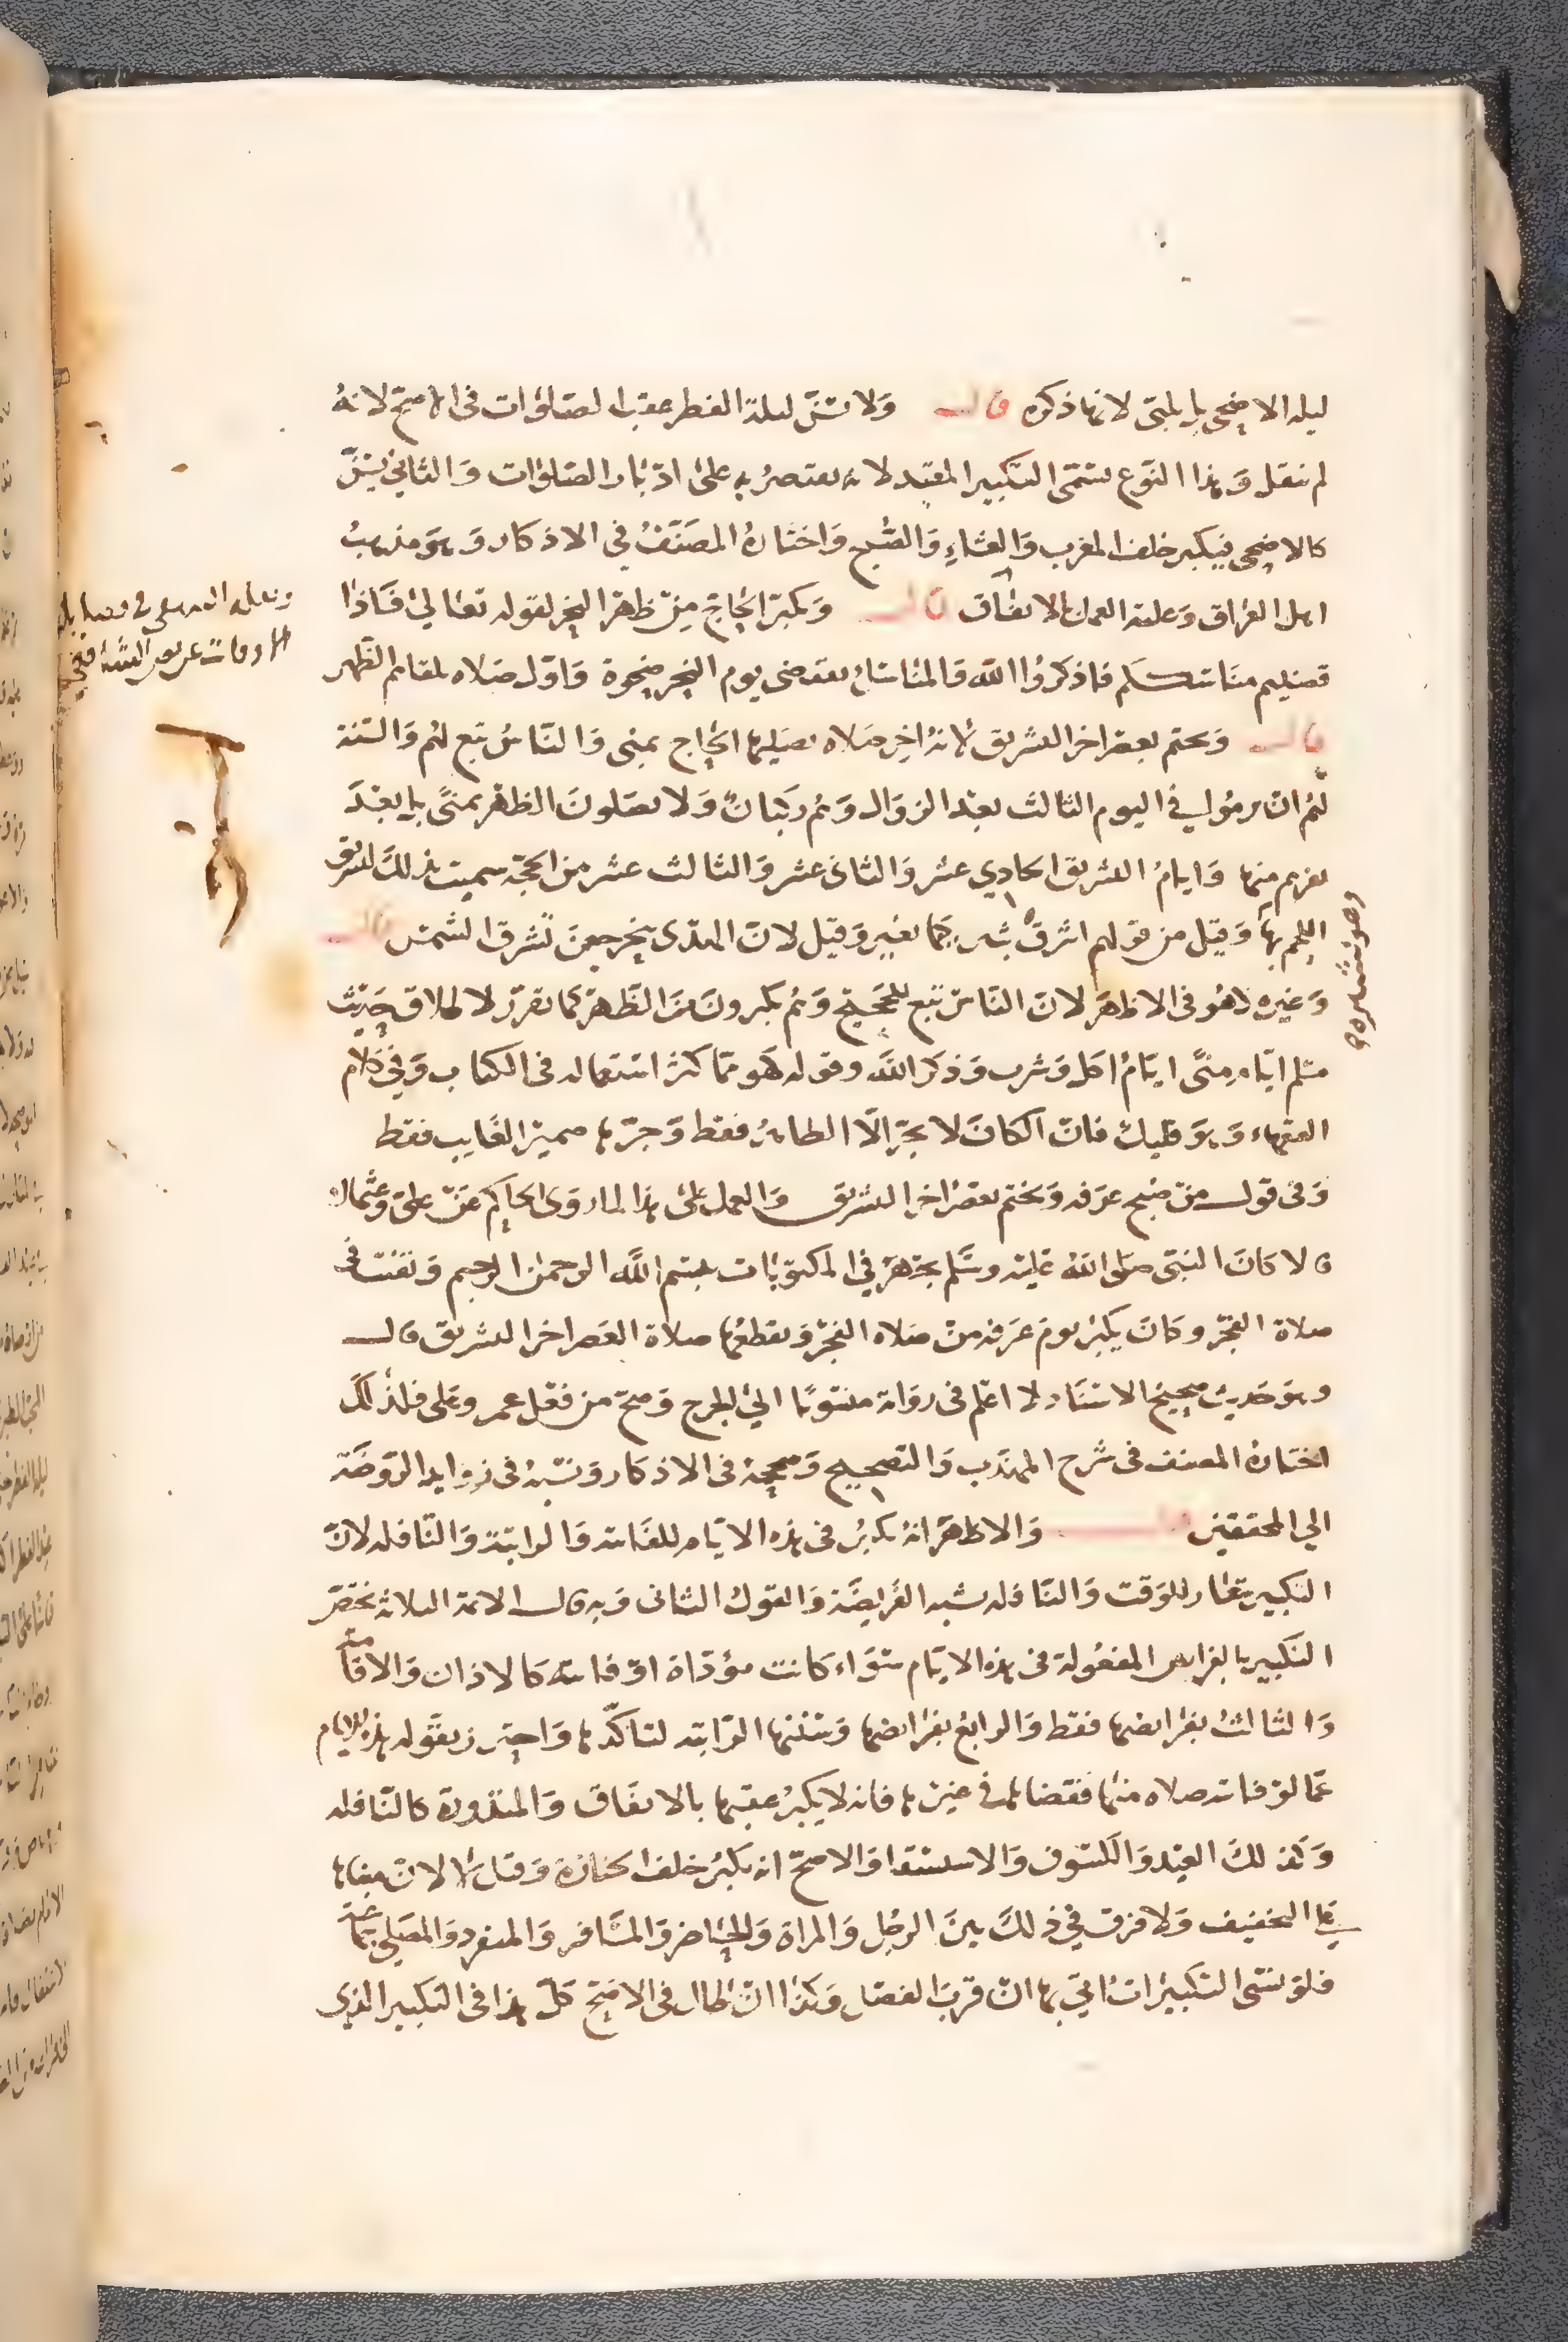 ليله الاضحى بل يلبى لانها ذكره قال ولا تسن ليلة الفطر عقب الصلوات في الاصح لانه
لم ينقل وهذا النوع يسمى التكبير المقيد لانه يقتصر به على ادبار الصلوات والثاني يسن
كالاضحى فيكبر خلف المغرب والعشاء والصبح واختاره المصنف في الاذكار وهو مذهب
اهل العراق وعليه العمل بالاتفاق قال ويكبر الحاج من ظهر النحر لقوله تعالى فاذا
قضيتم مناسككم فاذكروا الله والمناسك تقضى يوم النحر ضحوة واول صلاه تلقاهم الظهر
قال ويختم بصبح اخر التشريق لانه اخر صلاه يصليها الحاج بمنى والناس تبع لهم والسنة
لهم ان يرموا في اليوم الثالث بعد الزوال وهم ركبان ولا يصلون الظهر بمنى بل بعد
نفرهم منها وايام التشريق الحادي عشر والثاني عشر والثالث عشر من الحجة سميت بذلك لتشريق
اللحم بها وقيل من قولهم اشرق ثبير كيما نغير وقيل لان الهدى ينحر حين تشرق الشمس قال
وغيره كهو في الاظهر لان الناس تبع للحجيج وهم يكبرون من الظهر كما تقرر لاطلاق حديث
مسلم ايام منى ايام اكل وشرب وذكر الله وقوله كهو مما كثر استعماله في الكتاب وفي كلام
الفقهاء وهو قليل فان الكاف لا تجر الا الظاهر فقط وجرها ضمير الغايب فقط
وفي قول من صبح عرفه ويختم بعصر اخر التشريق والعمل على هذا لما روى الحاكم عن علي وعمار
قالا كان النبي صلى الله عليه وسلم يجهر في المكتوبات ببسم الله الرحمن الرحيم ويقنت في
صلاة الفجر وكان يكبر يوم عرفه من صلاه الفجر ويقطعها صلاة العصر اخر التشريق قال
وهو حديث صحيح الاسناد لا اعلم في رواته منسوبا الى الجرح وصح من فعل عمر وعلى فلذلك
اختاره المصنف في شرح المهذب والتصحيح وصححه في الاذكار ونسبه في زوايد الروضة
الى المحققين قال والاظهر انه يكبر في هذه الايام للفائته والراتبة والنافله لان
التكبير شعار للوقت والنافله تشبه الفريضة والقول الثاني وبه قال الائمة الثلاثة يختص
التكبير بالفرايض المفعولة في هذه الايام سواء كانت مؤداة او فائته كالاذان والاقامة
والثالث بفرايضها فقط والرابع بفرايضها وسننها الراتبه لتاكدها واحترز بقوله هذه الايام
عما لو فاته صلاه منها فقضاها في غيرها فانه لا يكبر عقبها بالاتفاق والمنذورة كالنافله
وكذلك العيد والكسوف والاستسقا والاصح انه يكبر خلف الجنازة وقيل لا لان مبناها
على التخفيف ولا فرق في ذلك بين الرجل والمراة والحاضر والمسافر والمنفرد والمصلي جماعة
فلو نسى التكبيرات اتى بها ان قرب الفصل وكذا ان طال في الاصح كل هذا في التكبير الذي